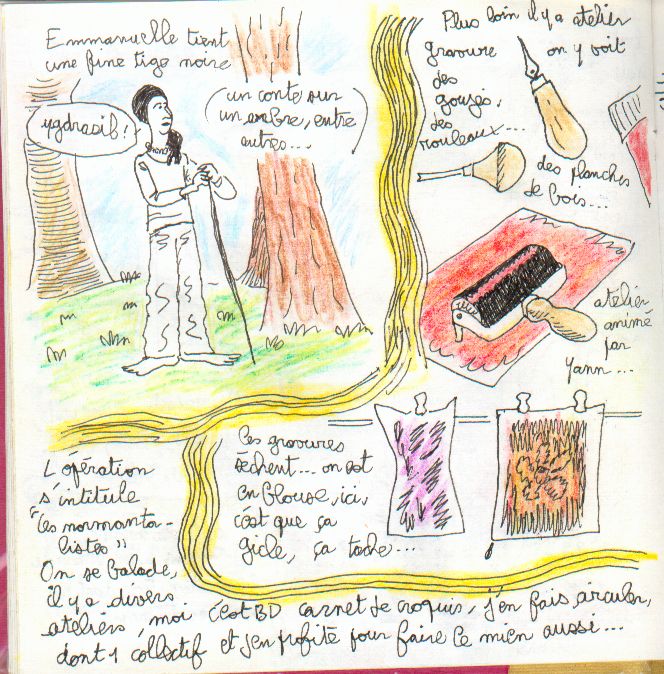 Emmanuelle tient
une fine tige noire
ygdrasil!
(un conte sur
un arbre, entre
autres...)
Plus loin il y a atelier
gravure on y voit
des
gouges,
des
rouleaux...
des planches
de bois...
atelier
animé
par
Yann...
Les gravures
sèchent... on est
en blouse, ici,
c'est que ça
gicle, ça tache...
L'opération
s'intitule
"Les normanta-
listes"
On se balade,
il y a divers
ateliers, moi c'est BD carnet de croquis, j'en fais circuler,
dont 1 collectif et j'en profite pour faire le mien aussi...